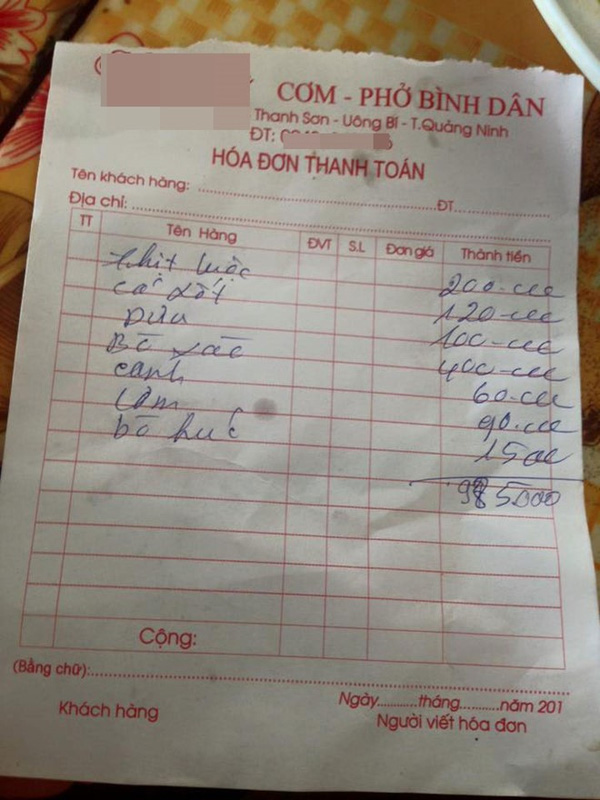 CƠM - PHỞ BÌNH DÂN
Thanh Sơn - Uông Bí - T.Quảng Ninh
ĐT:
HÓA ĐƠN THANH TOÁN
Tên khách hàng: ĐT
Địa chỉ:
TT Tên Hàng ĐVT S.L Đơn giá Thành tiền
thịt luộc 200.000
cá sốt 120.000
Dưa 100.000
Bò xào 400.000
canh 60.000
cơm 90.000
bò húc 15000
985.000
Cộng:
(Bằng chữ):
Ngày tháng năm 201
Khách hàng Người viết hóa đơn